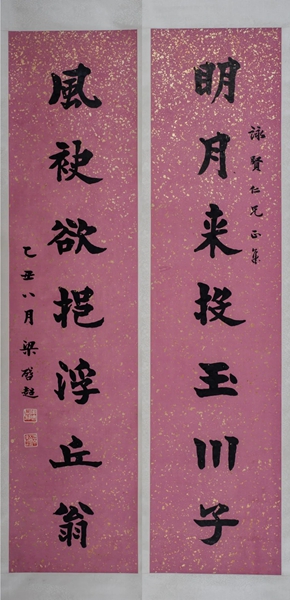 明月来投玉川子
詠賢仁兄正
風袂欲挹浮丘翁
乙丑八月梁啓超